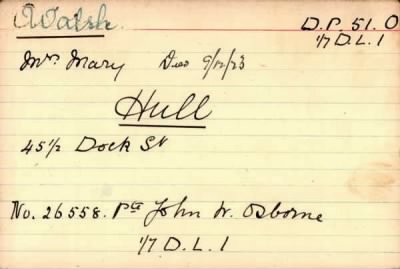 Walsh. D.P. 51. O
1/7 D.L.1
Mrs. Mary Died 9/12/23
Hull
45 1/2 Dock St
No. 26558. Pte John W. Osborne
1/7 D.L.1